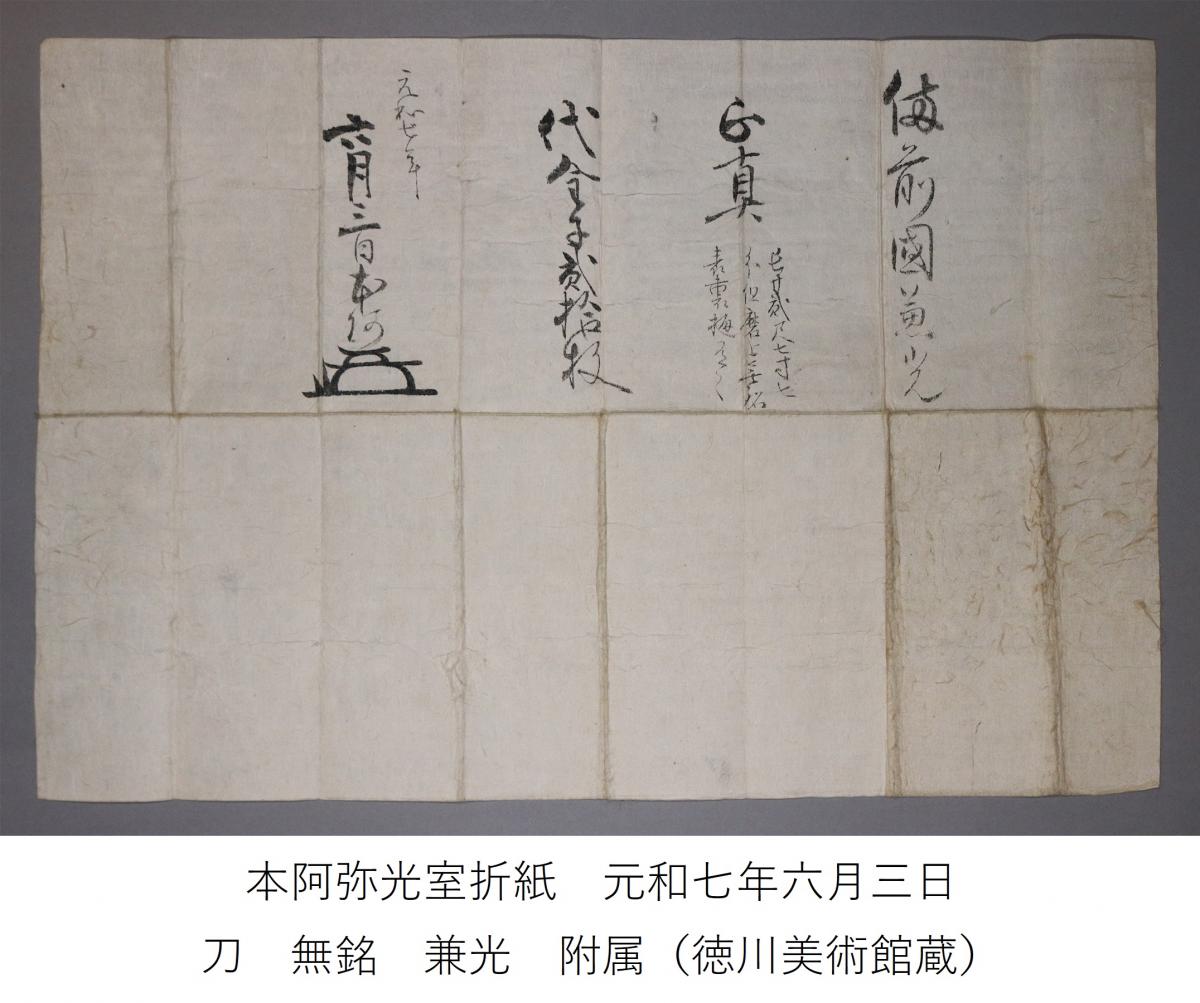 備前國兼光
正真
長サ貳尺七寸七
分但磨上無銘
表裏樋有之
代金子貳拾枚
元和七年
六月三日本阿
本阿弥光室折紙　元和七年六月三日
刀　無銘　兼光　附属（徳川美術館蔵）